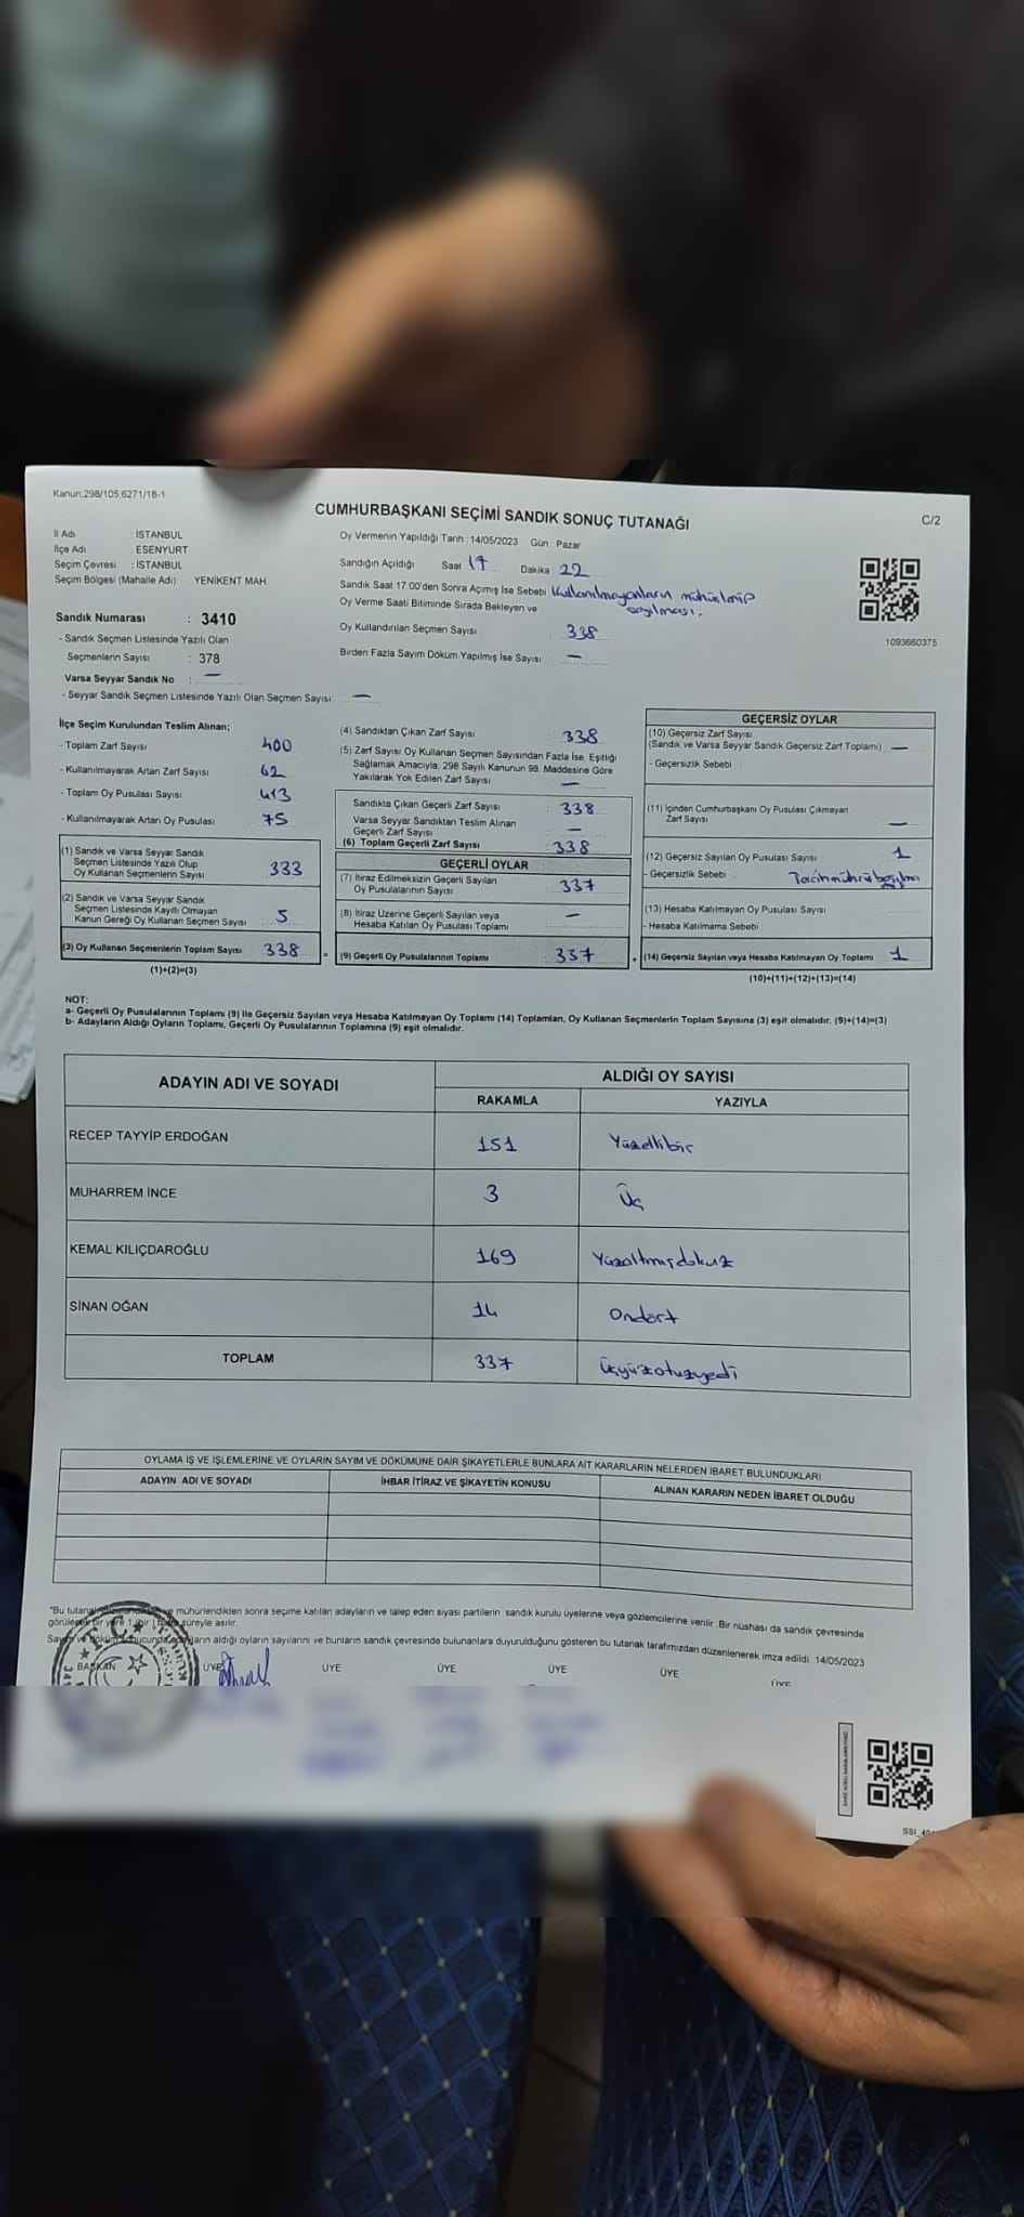 Kanun:298/105,6271/18-1
CUMHURBAŞKANI SEÇİMİ SANDIK SONUÇ TUTANAĞI
C/2
İl Adı : İSTANBUL
İlçe Adı : ESENYURT
Seçim Çevresi : İSTANBUL
Seçim Bölgesi (Mahalle Adı) YENİKENT MAH.
Oy Vermenin Yapıldığı Tarih :14/05/2023 Gün: Pazar
Sandığın Açıldığı Saat 17 Dakika : 22
Sandık Saat 17:00'den Sonra Açılmış İse Sebebi Kullanılmayanların mühürlenip
Oy Verme Saati Bitiminde Sırada Bekleyen ve sayılması.
Oy Kullandırılan Seçmen Sayısı 338
Birden Fazla Sayım Döküm Yapılmış İse Sayısı —
1093660375
Sandık Numarası : 3410
- Sandık Seçmen Listesinde Yazılı Olan
Seçmenlerin Sayısı : 378
Varsa Seyyar Sandık No : —
- Seyyar Sandık Seçmen Listesinde Yazılı Olan Seçmen Sayısı: —
İlçe Seçim Kurulundan Teslim Alınan;
- Toplam Zarf Sayısı 400
- Kullanılmayarak Artan Zarf Sayısı 62
- Toplam Oy Pusulası Sayısı 413
- Kullanılmayarak Artan Oy Pusulası 75
(1) Sandık ve Varsa Seyyar Sandık
Seçmen Listesinde Yazılı Olup
Oy Kullanan Seçmenlerin Sayısı 333
(2) Sandık ve Varsa Seyyar Sandık
Seçmen Listesinde Kayıtlı Olmayan
Kanun Gereği Oy Kullanan Seçmen Sayısı 5
(3) Oy Kullanan Seçmenlerin Toplam Sayısı 338
(1)+(2)=(3)
(4) Sandıktan Çıkan Zarf Sayısı 338
(5) Zarf Sayısı Oy Kullanan Seçmen Sayısından Fazla İse, Eşitliği
Sağlamak Amacıyla; 298 Sayılı Kanunun 98. Maddesine Göre
Yakılarak Yok Edilen Zarf Sayısı —
Sandıkta Çıkan Geçerli Zarf Sayısı : 338
Varsa Seyyar Sandıktan Teslim Alınan
Geçerli Zarf Sayısı —
(6) Toplam Geçerli Zarf Sayısı : 338
GEÇERLİ OYLAR
(7) İtiraz Edilmeksizin Geçerli Sayılan
Oy Pusulalarının Sayısı 337
(8) İtiraz Üzerine Geçerli Sayılan veya
Hesaba Katılan Oy Pusulası Toplamı —
(9) Geçerli Oy Pusulalarının Toplamı : 337
GEÇERSİZ OYLAR
(10) Geçersiz Zarf Sayısı
(Sandık ve Varsa Seyyar Sandık Geçersiz Zarf Toplamı) —
- Geçersizlik Sebebi
(11) İçinden Cumhurbaşkanı Oy Pusulası Çıkmayan
Zarf Sayısı —
(12) Geçersiz Sayılan Oy Pusulası Sayısı 1
- Geçersizlik Sebebi
(13) Hesaba Katılmayan Oy Pusulası Sayısı
- Hesaba Katılmama Sebebi
(14) Geçersiz Sayılan veya Hesaba Katılmayan Oy Toplamı 1
(10)+(11)+(12)+(13)=(14)
NOT:
a- Geçerli Oy Pusulalarının Toplamı (9) ile Geçersiz Sayılan veya Hesaba Katılmayan Oy Toplamı (14) Toplamları, Oy Kullanan Seçmenlerin Toplam Sayısına (3) eşit olmalıdır. (9)+(14)=(3)
b- Adayların Aldığı Oyların Toplamı, Geçerli Oy Pusulalarının Toplamına (9) eşit olmalıdır.
ADAYIN ADI VE SOYADI
ALDIĞI OY SAYISI
RAKAMLA YAZIYLA
RECEP TAYYİP ERDOĞAN 151 Yüzellibir
MUHARREM İNCE 3 Üç
KEMAL KILIÇDAROĞLU 169 Yüzaltmışdokuz
SİNAN OĞAN 14 Ondört
TOPLAM 337 Üçyüzotuzyedi
OYLAMA İŞ VE İŞLEMLERİNE VE OYLARIN SAYIM VE DÖKÜMÜNE DAİR ŞİKAYETLERLE BUNLARA AİT KARARLARIN NELERDEN İBARET BULUNDUKLARI
ADAYIN ADI VE SOYADI İHBAR İTİRAZ VE ŞİKAYETİN KONUSU ALINAN KARARIN NEDEN İBARET OLDUĞU
mühürlendikten sonra seçime katılan adayların ve talep eden siyasi partilerin sandık kurulu üyelerine veya gözlemcilerine verilir. Bir nüshası da sandık çevresinde
süreyle asılır.
aldığı oyların sayılarını ve bunların sandık çevresinde bulunanlara duyurulduğunu gösteren bu tutanak tarafımızdan düzenlenerek imza edildi. 14/05/2023
BAŞKAN ÜYE ÜYE ÜYE ÜYE ÜYE ÜYE
T.C.